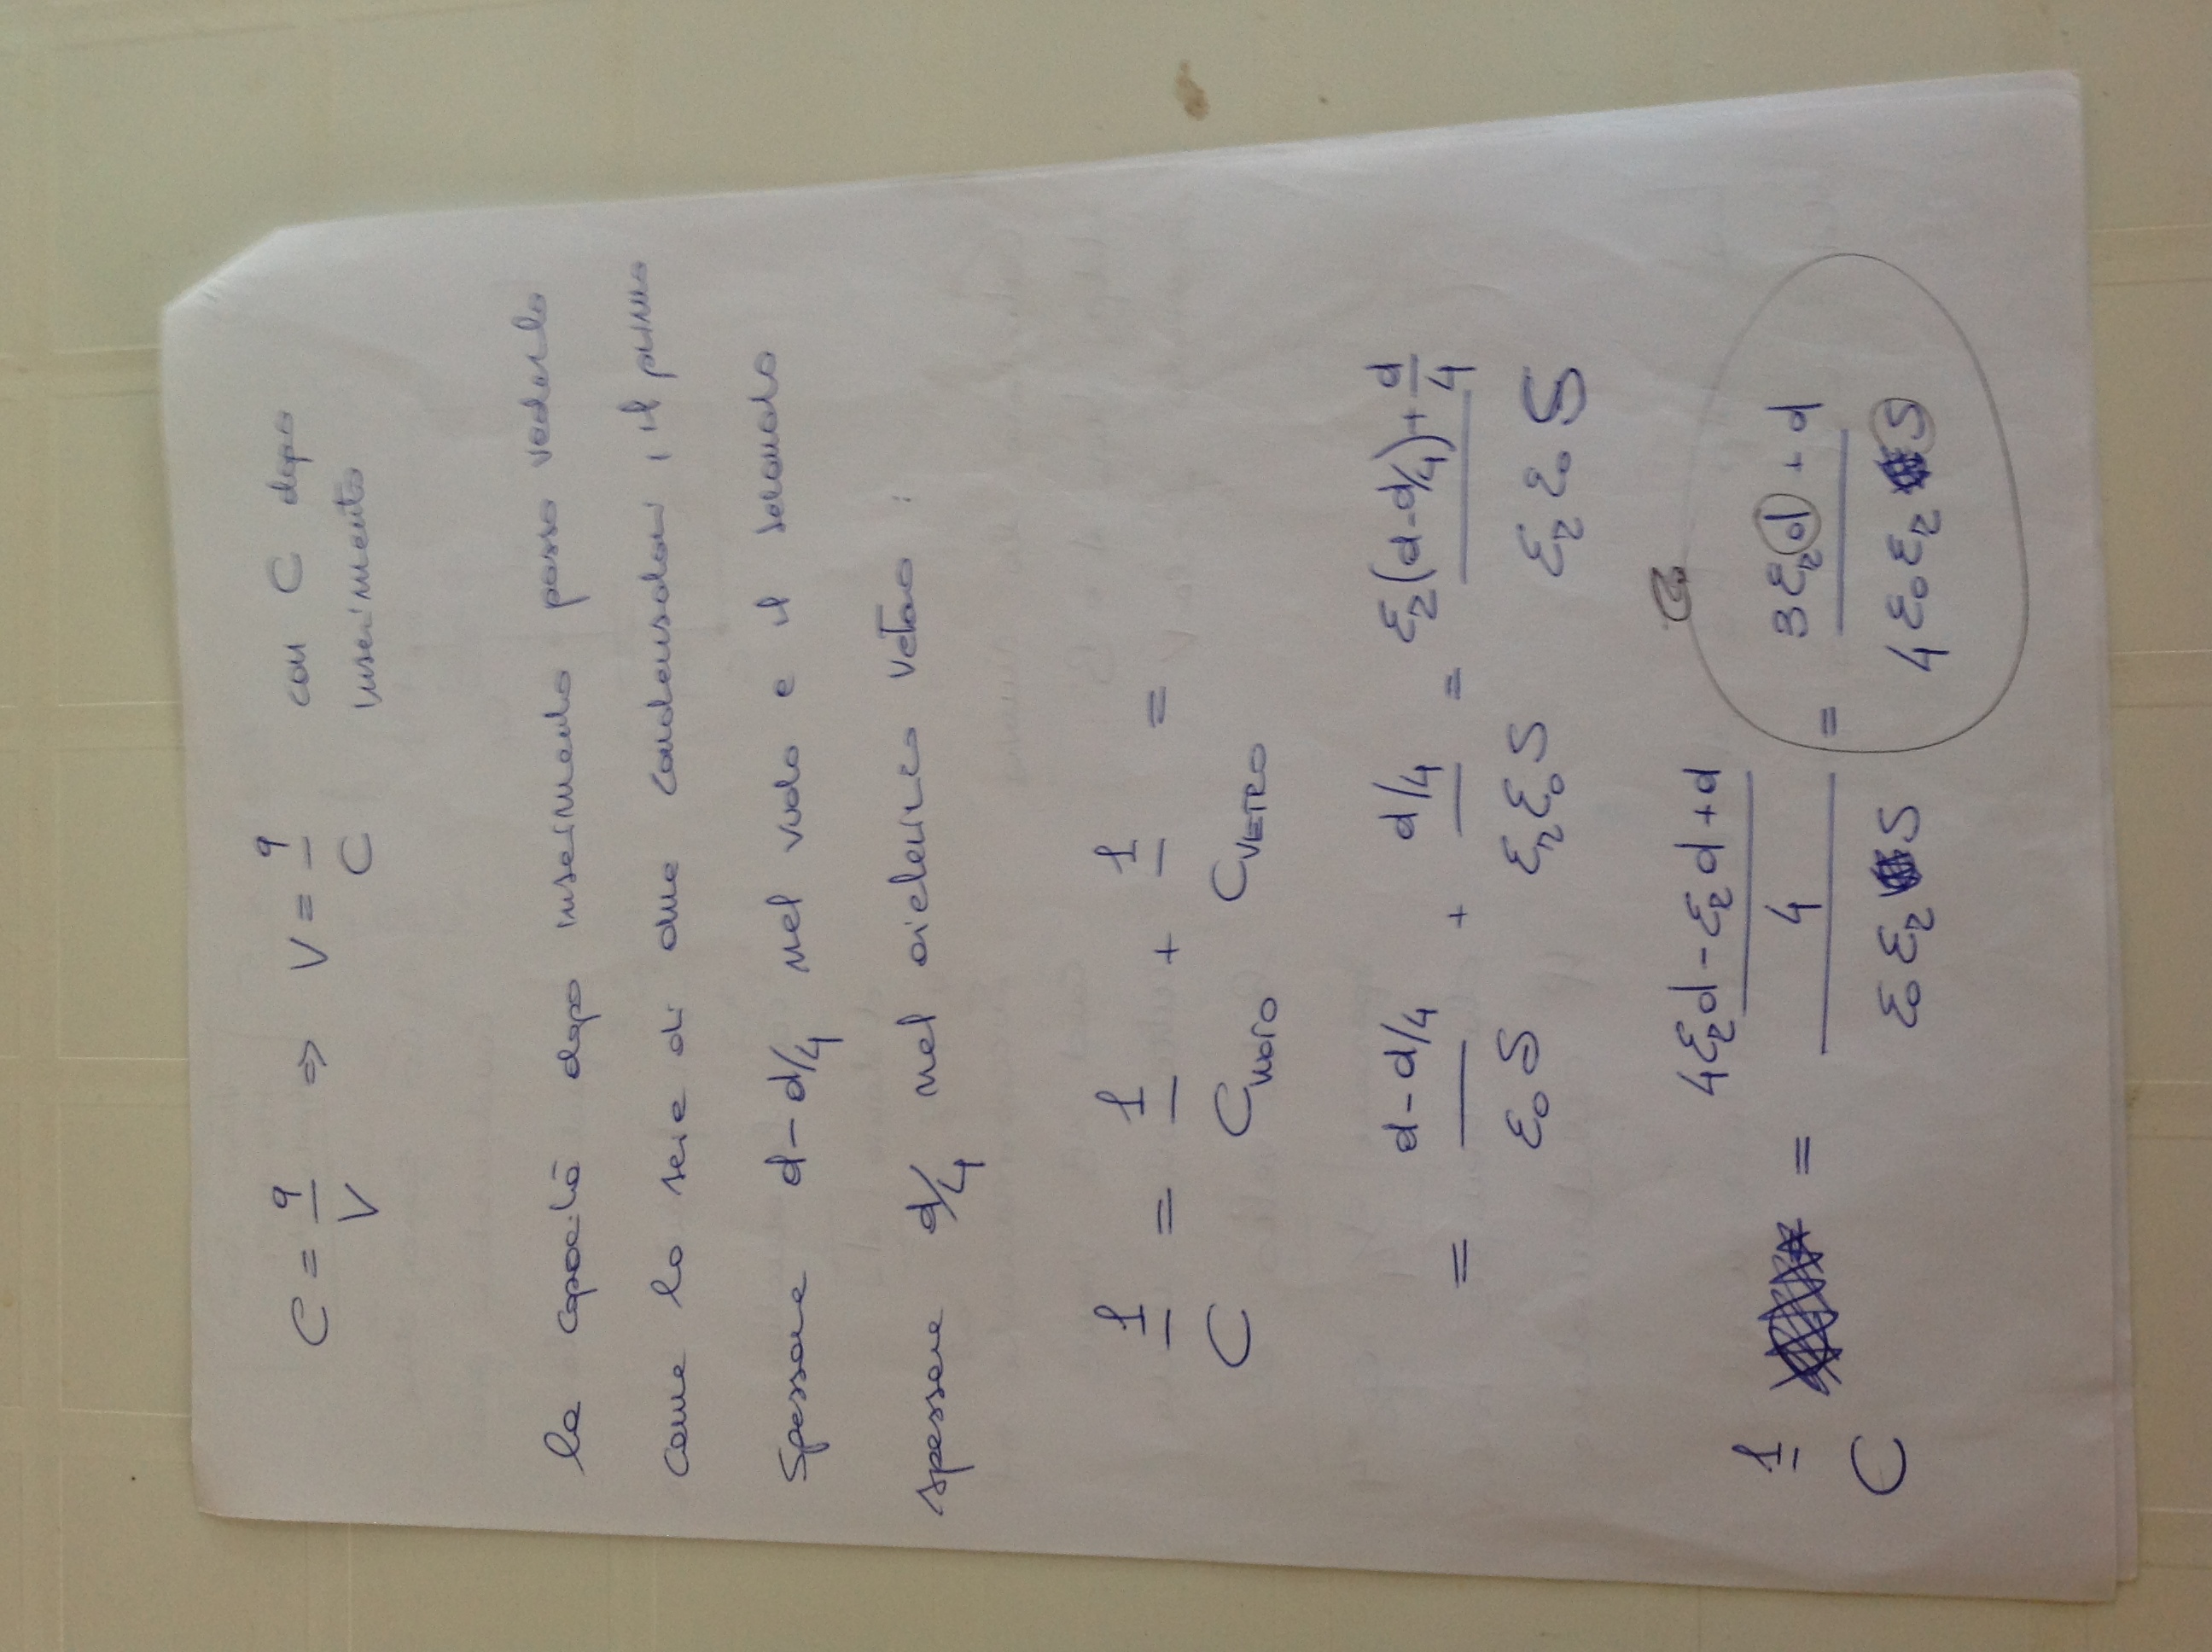 C = q/V ⇒ V = q/C con C dopo
inserimento
la capacità dopo inserimento posso vederla
come la serie di due condensatori, il primo
spessore d-d/4 nel vuoto e il secondo
spessore d/4 nel dielettrico vetro :
1/C = 1/C_VUOTO + 1/C_VETRO =
= (d-d/4)/(ε₀S) + (d/4)/(εᵣε₀S) = (εᵣ(d-d/4)+d/4)/(εᵣε₀S)
1/C = ((4εᵣd-εᵣd+d)/4)/(ε₀εᵣS) = (3εᵣd+d)/(4ε₀εᵣS)